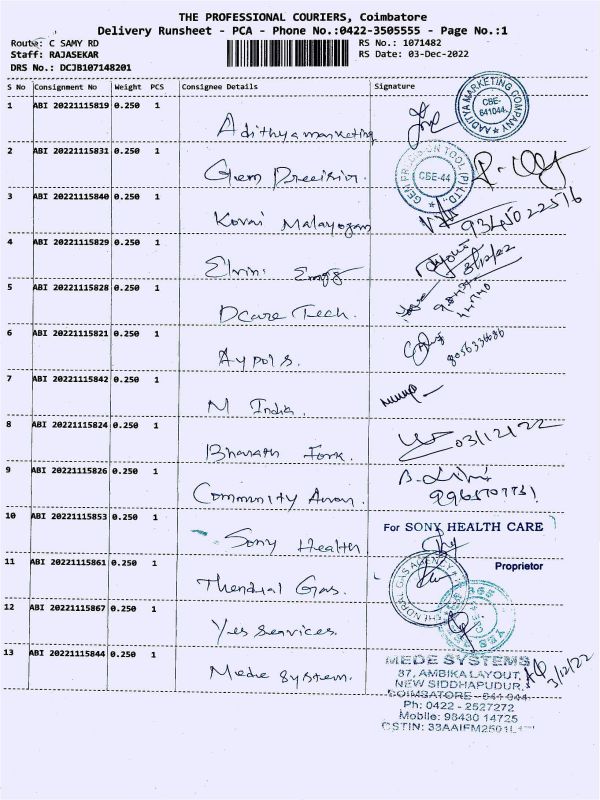 THE PROFESSIONAL COURIERS, Coimbatore
Delivery Runsheet - PCA - Phone No.:0422-3505555 - Page No.:1
Route: C SAMY RD
Staff: RAJASEKAR
DRS No.: DCJB107148201
RS No.: 1071482
RS Date: 03-Dec-2022
S No Consignment No Weight PCS Consignee Details Signature
1 ABI 20221115819 0.250 1
Adithyamarketing
AADITYA MARKETING COMPANY
CBE-
641044.
2 ABI 20221115831 0.250 1
Gem Precision.
CBE-44
3 ABI 20221115840 0.250 1
Kovai Malayogam
9345022576
4 ABI 20221115829 0.250 1
Elvini Engg
3/12/22
5 ABI 20221115828 0.250 1
Dcare Tech.
6 ABI 20221115821 0.250 1
Aypols.
7 ABI 20221115842 0.250 1
M India.
8 ABI 20221115824 0.250 1
Bharath Fork.
03/12/22
9 ABI 20221115826 0.250 1
Community
10 ABI 20221115853 0.250 1
Sony Health
For SONY HEALTH CARE
Proprietor
11 ABI 20221115861 0.250 1
Thendral Gas.
12 ABI 20221115867 0.250 1
Yes Services.
13 ABI 20221115844 0.250 1
Mede System.
MEDE SYSTEMS
87, AMBIKA LAYOUT,
NEW SIDDHAPUDUR,
COIMBATORE - 641 044
Ph: 0422 - 2527272
Mobile: 98430 14725
3/12/22